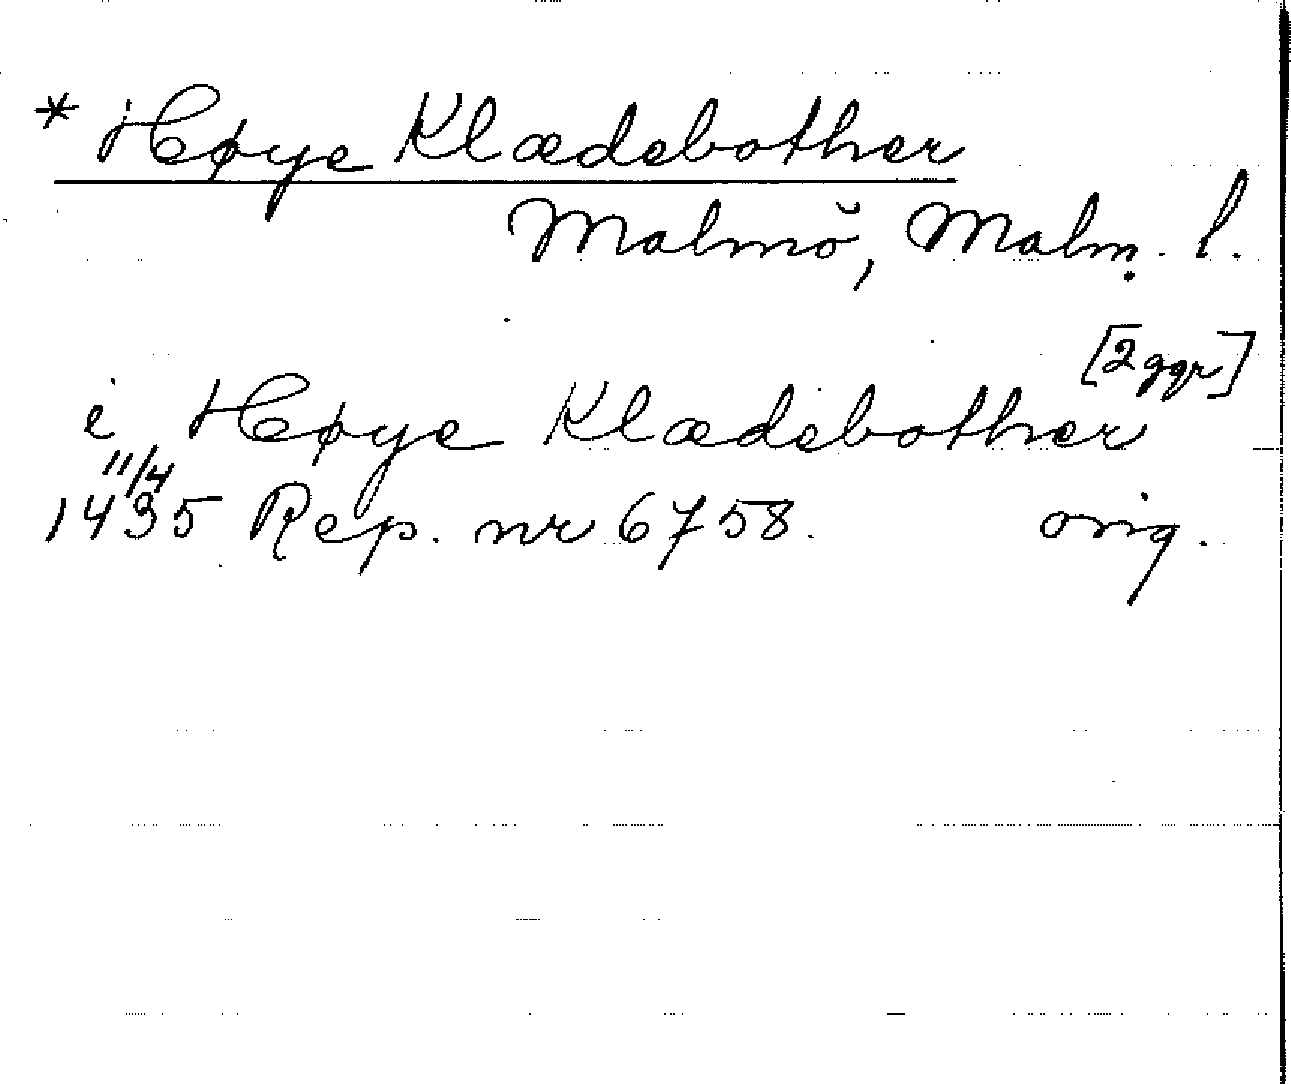 * Høye Klædebother
Malmö, Malm. l.
[2 ggr]
i Høye Klædebother
11/4
1435 Rep. nr 6758. orig.